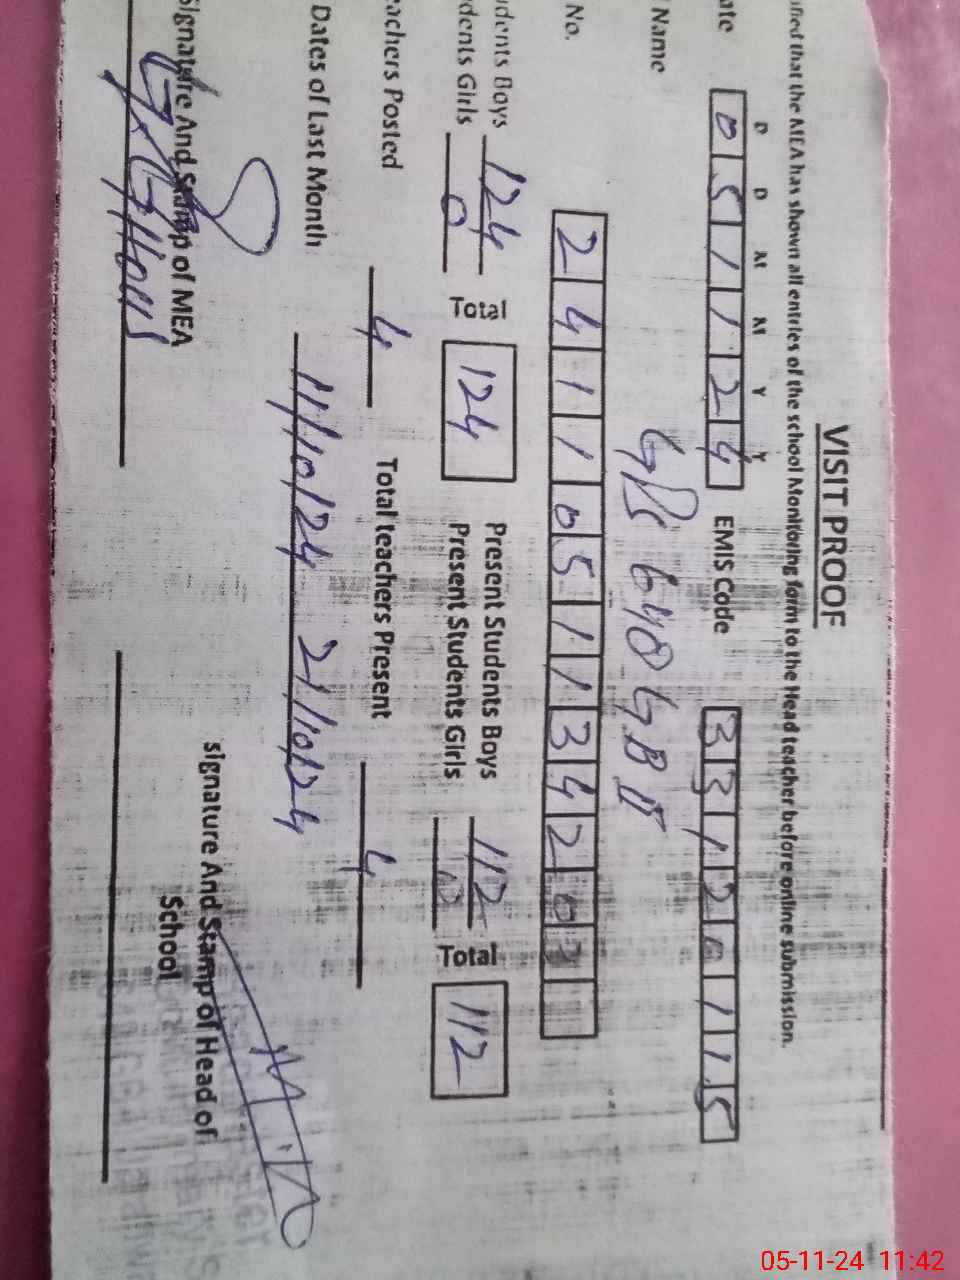 VISIT PROOF
ified that the MEA has shown all entries of the school Monitoring form to the Head teacher before online submission.
D D M M Y Y
ate 0 5 1 1 2 4 EMIS Code 3 3 1 2 0 1 1 5
Name GPS 640 GB II
No. 2 4 1 1 0 5 1 1 3 4 2 0
udents Boys 124 Total 124 Present Students Boys 112 Total 112
dents Girls 0 Present Students Girls
eachers Posted 4 Total teachers Present 4
Dates of Last Month 11/10/24 21/10/24
Signature And Stamp of MEA
signature And Stamp of Head of
School
05-11-24 11:42